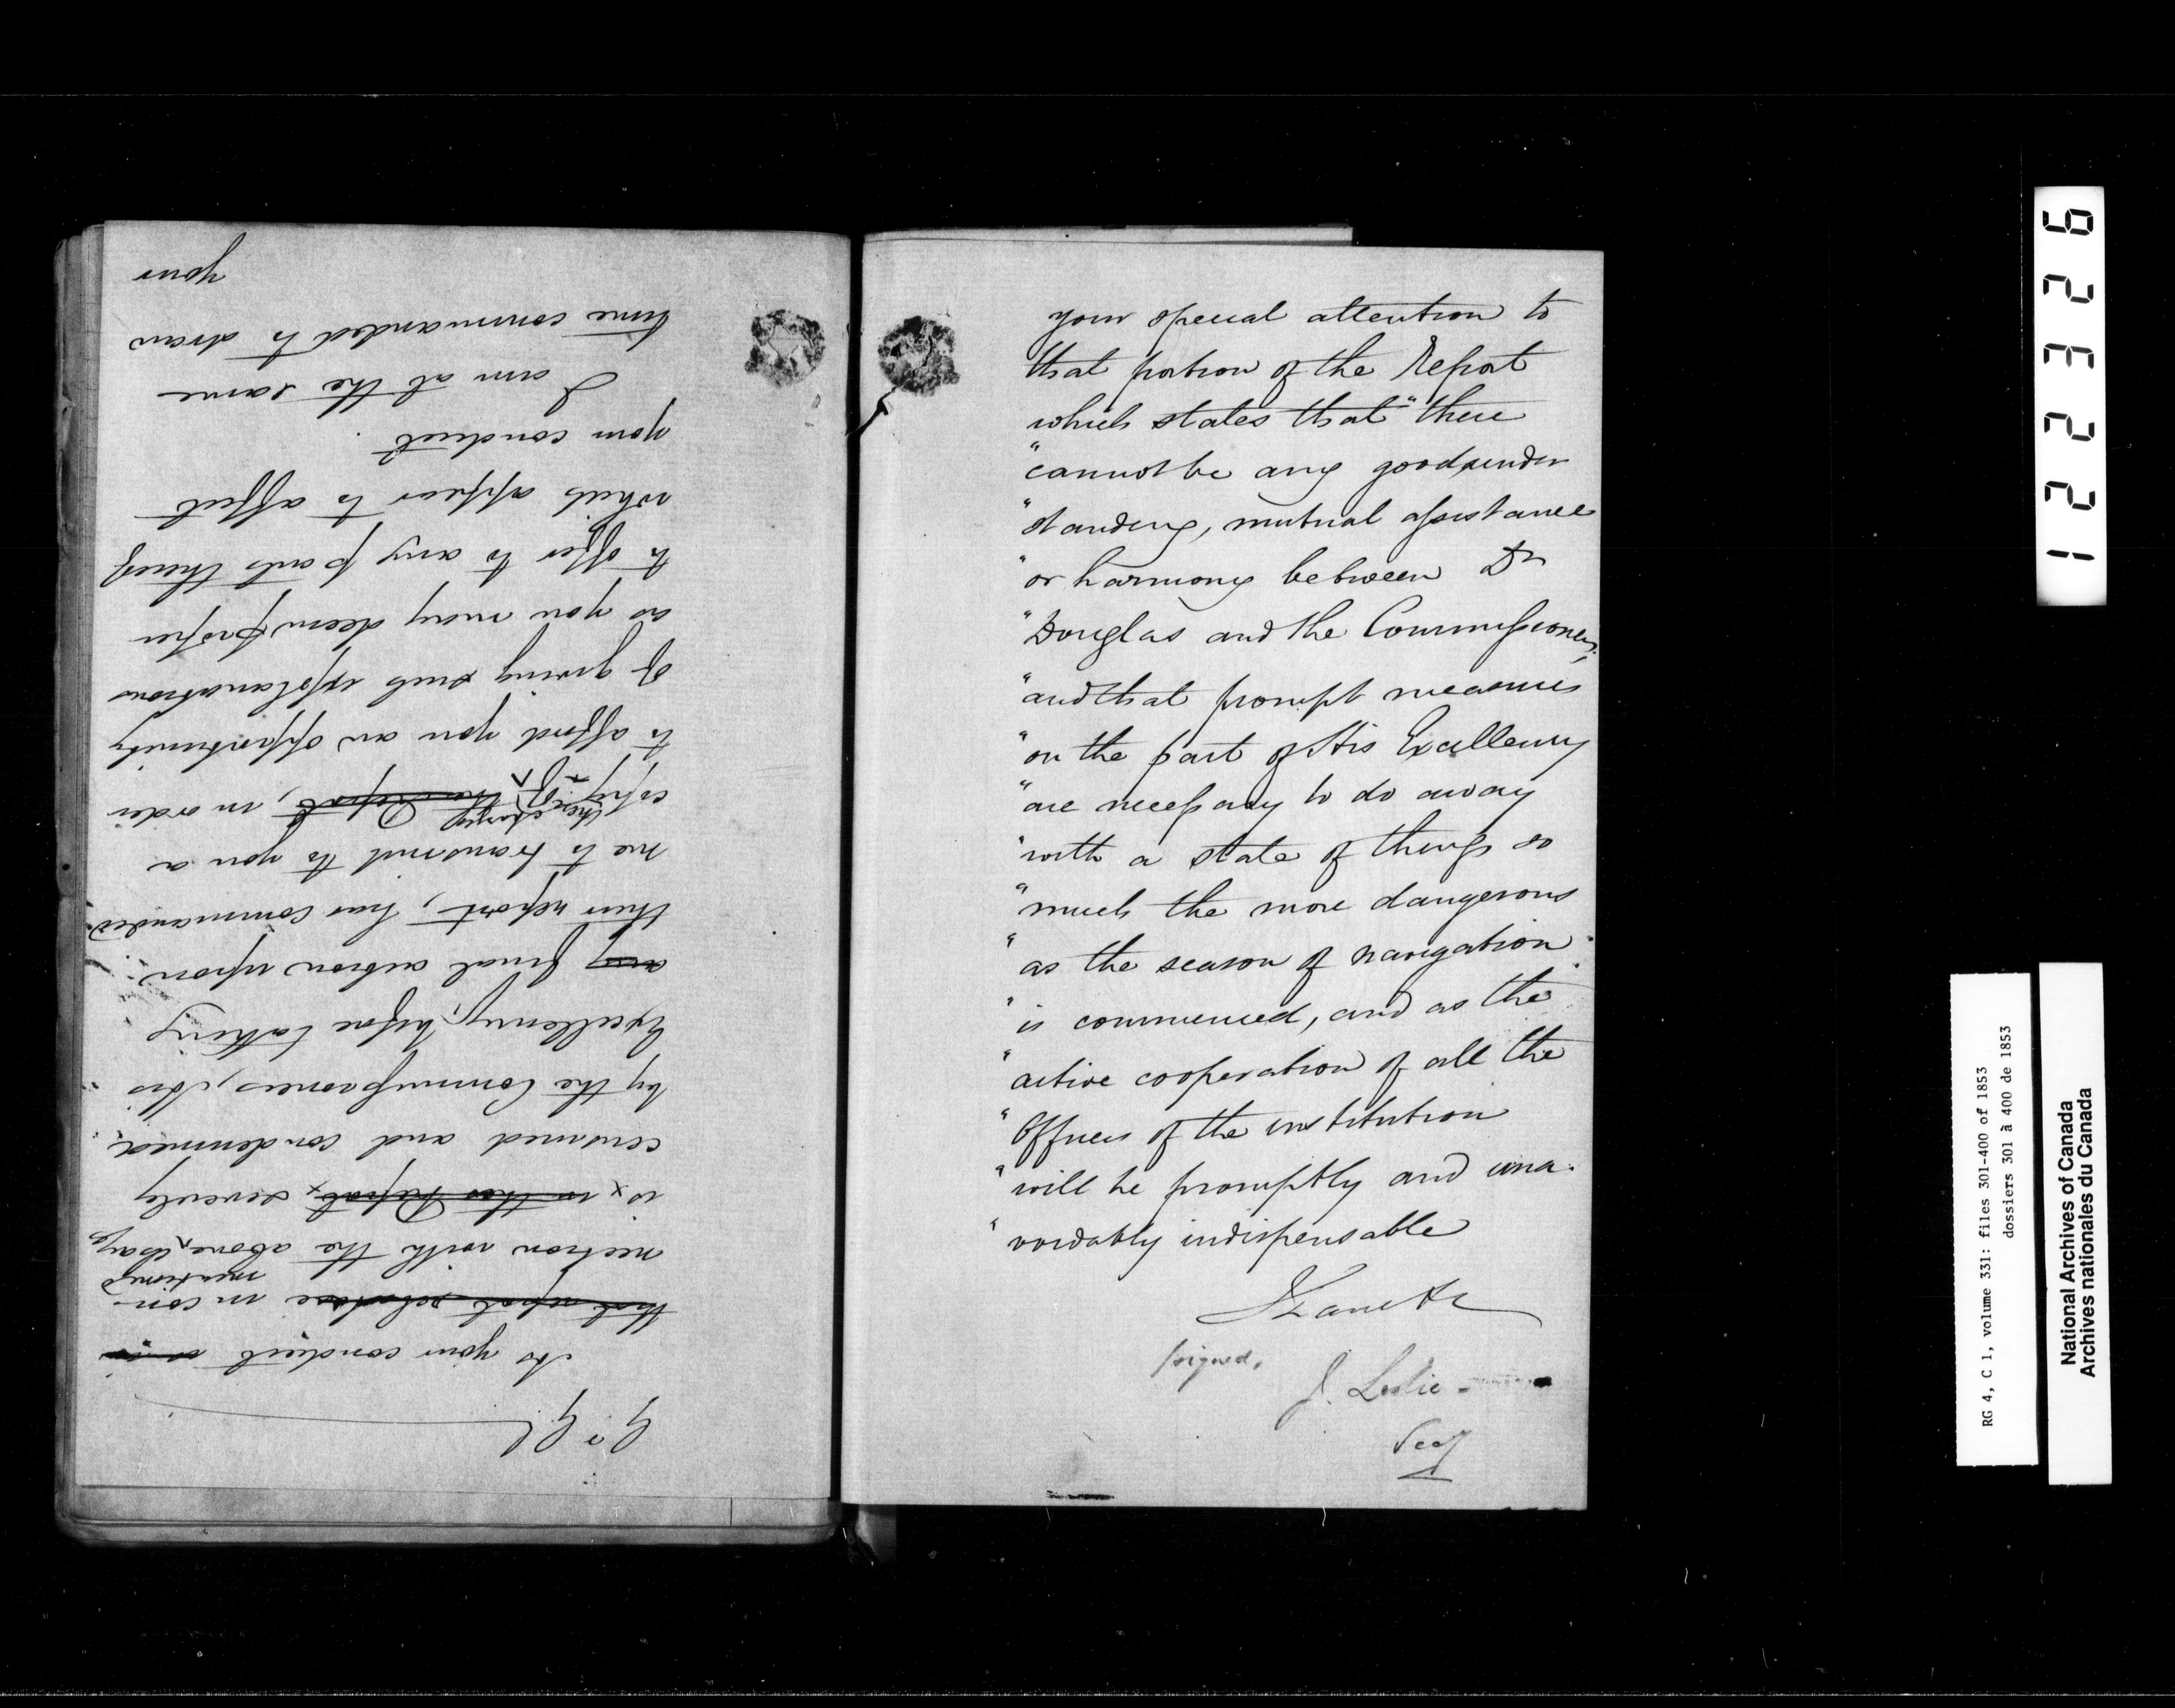 As your conduct is in
that report relative in con-
mentioned
nection with the above, Bay
is x in this Report x severely
censured and condemned
by the Commissioners, His
Excellency, before taking
any final action upon
their report, has commanded
me to transmit to you a
copy of the Report, in order
to afford you an opportunity
of giving such explanations
as you may deem proper
to offer to any parts thereof
which appear to affect
your conduct.
I am at the same
time commanded to draw
your
your special attention to
that portion of the Report
which states that "there
"cannot be any good under
"standing, mutual assistance
"or harmony between Dr
"Douglas and the Commissioners;
"and that prompt measures
"on the part of His Excellency
"are necessary to do away
"with a state of things so
"much the more dangerous
"as the season of navigation
"is commenced, and as the
"active cooperation of all the
"Officers of the institution
"will be promptly and una-
"voidably indispensable
I have &c
signed,
J. Leslie
Secy
122326
RG 4, C 1, volume 331: files 301-400 of 1853
dossiers 301 à 400 de 1853
National Archives of Canada
Archives nationales du Canada